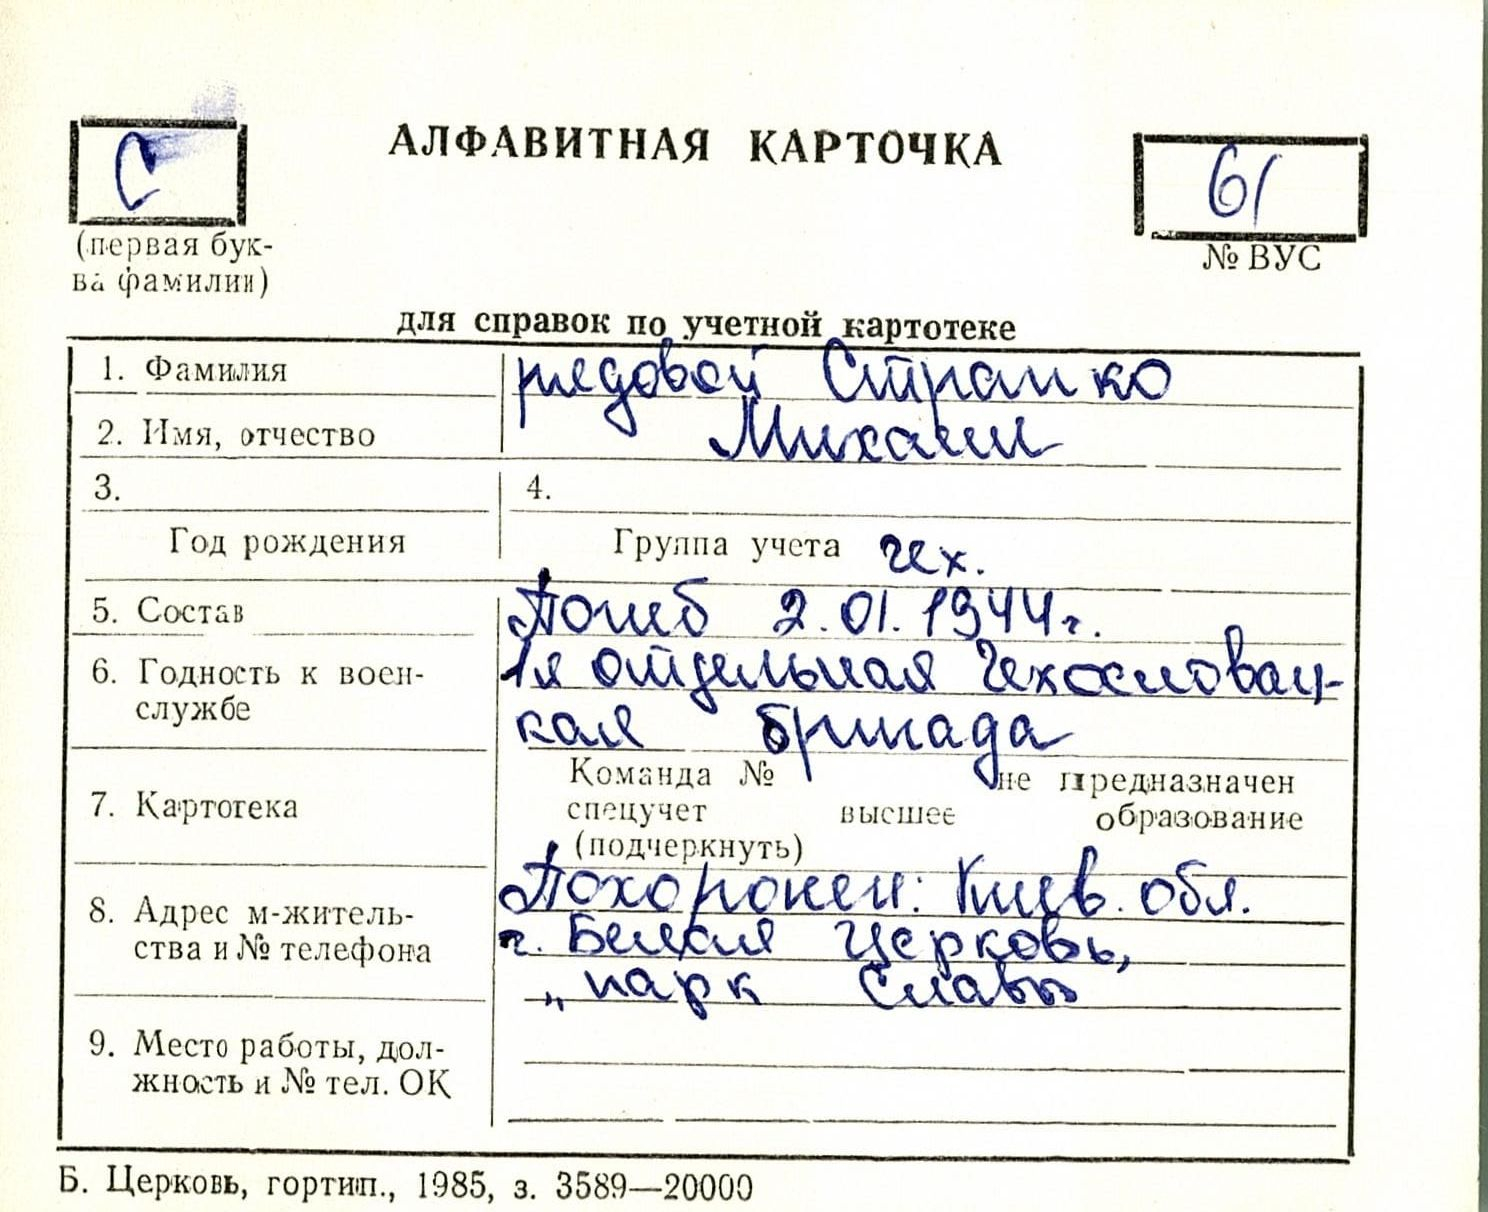 С
АЛФАВИТНАЯ КАРТОЧКА
61
(первая бук-
ва фамилии)
№ ВУС
для справок по учетной картотеке
1. Фамилия
рядовой Странко
2. Имя, отчество
Михаил
3.
4.
Год рождения
Группа учета чех.
5. Состав
Погиб 2.01.1944г.
6. Годность к воен-
службе
1я отдельная Чехословац-
кая бригада
7. Картотека
Команда № не предназначен
спецучет высшее образование
(подчеркнуть)
8. Адрес м-житель-
ства и № телефона
Похоронен: Киев. обл.
г. Белая Церковь,
„парк Славы
9. Место работы, дол-
жность и № тел. ОК
Б. Церковь, гортип., 1985, з. 3589—20000